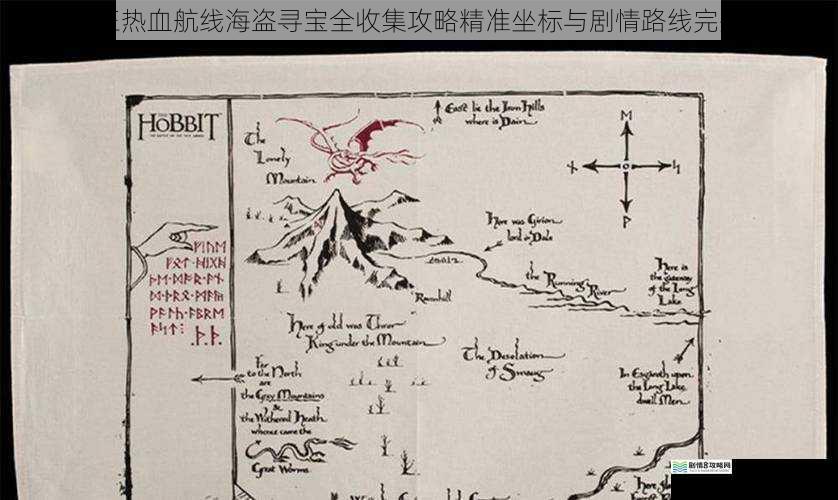 热血航线海盗寻宝全收集攻略精准坐标与剧情路线完
THE
HOBBIT
The
Lonely
Mountain
East lie the Iron Hills
where is Dain
Here was Girion
lord in Dale
the Running River
Here is
the gateway
of the Long
Lake
Ravenhill
ᚠᛁᚢᛖ
Here of old was Thror
King under the Mountain
The Desolation
of Smaug
Far
to the North
are
the Grey Mountains
&
the Withered Heath
whence came the
Great Worms
In Esgaroth upon
the Long Lake
dwell Men
剧情8攻略网